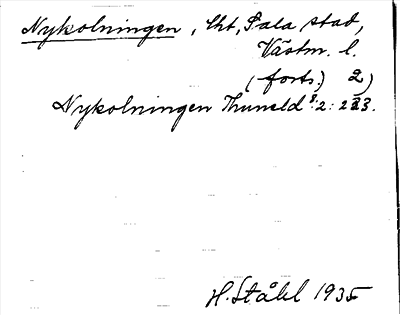 Nykolningen, lht, Sala stad,
Västm. l.
(forts.) 2)
Nykolningen Thuneld : 2: 233.
H. Ståhl 1935